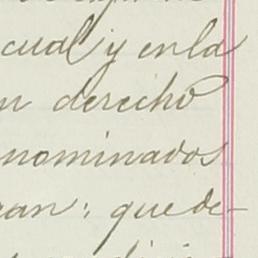 cual y en la
n derecho
nominados
an: que de-